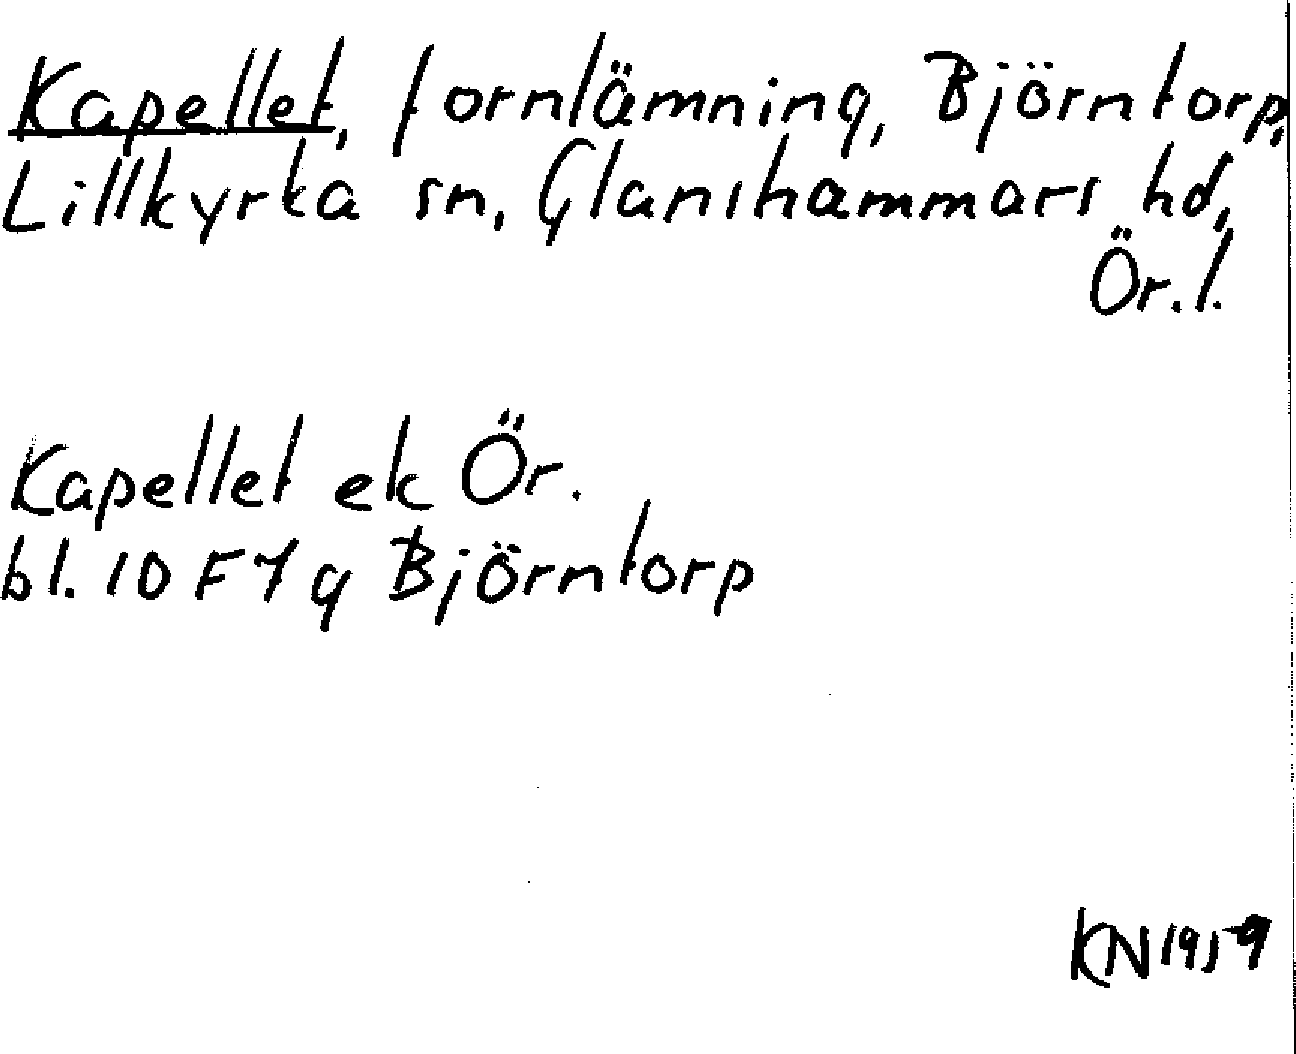 Kapellet, fornlämning, Björntorp,
Lillkyrka sn, Glanshammars hd,
Ör. l.
Kapellet ek Ör.
bl. 10 F 7 g Björntorp
KN 1959